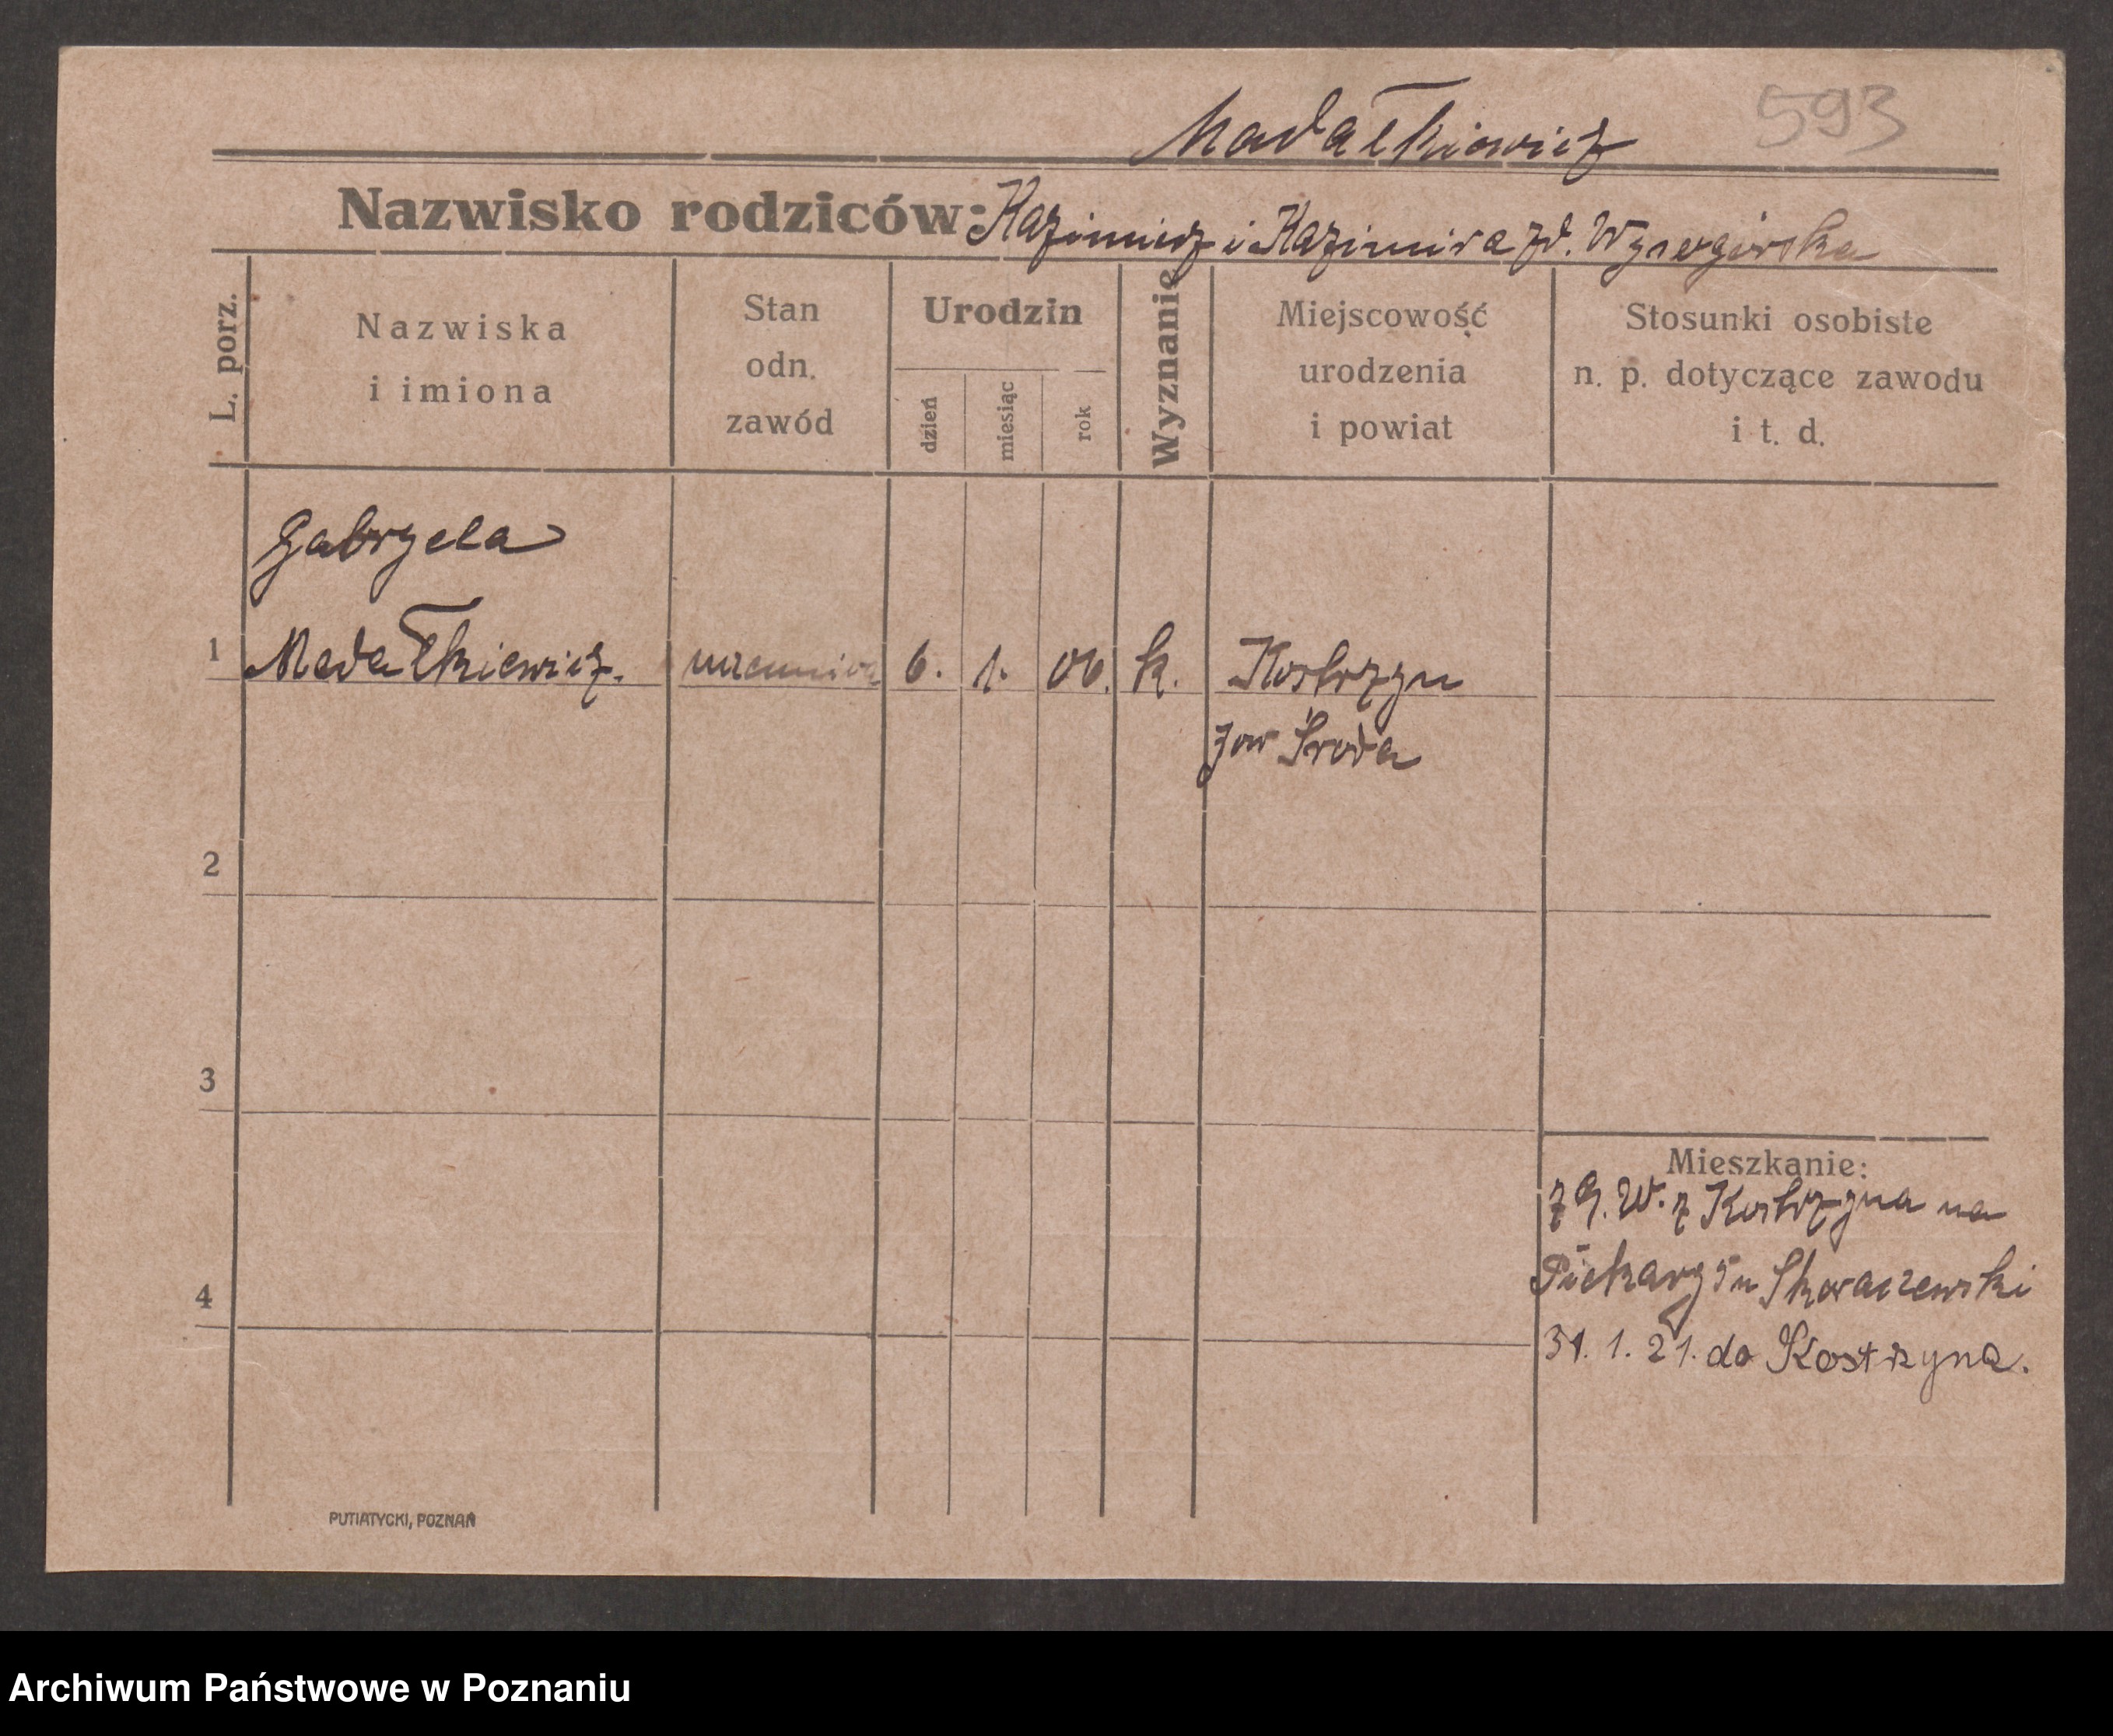 593
Madałkiewicz
Nazwisko rodziców: Kazimierz i Kazimira zd.
L. porz.
Nazwiska
i imiona
Stan
odn.
zawód
Urodzin
dzień
miesiąc
rok
Wyznanie
Miejscowość
urodzenia
i powiat
Stosunki osobiste
n. p. dotyczące zawodu
i t. d.
Gabryela
1 Madałkiewicz. 6. 1. k. Kostrzyn
Środa
2
3
4
Mieszkanie:
z G. W. z Kostrzyna na
Piekary
31. 1. 21. do Kostrzyna.
PUTIATYCKI, POZNAŃ
Archiwum Państwowe w Poznaniu